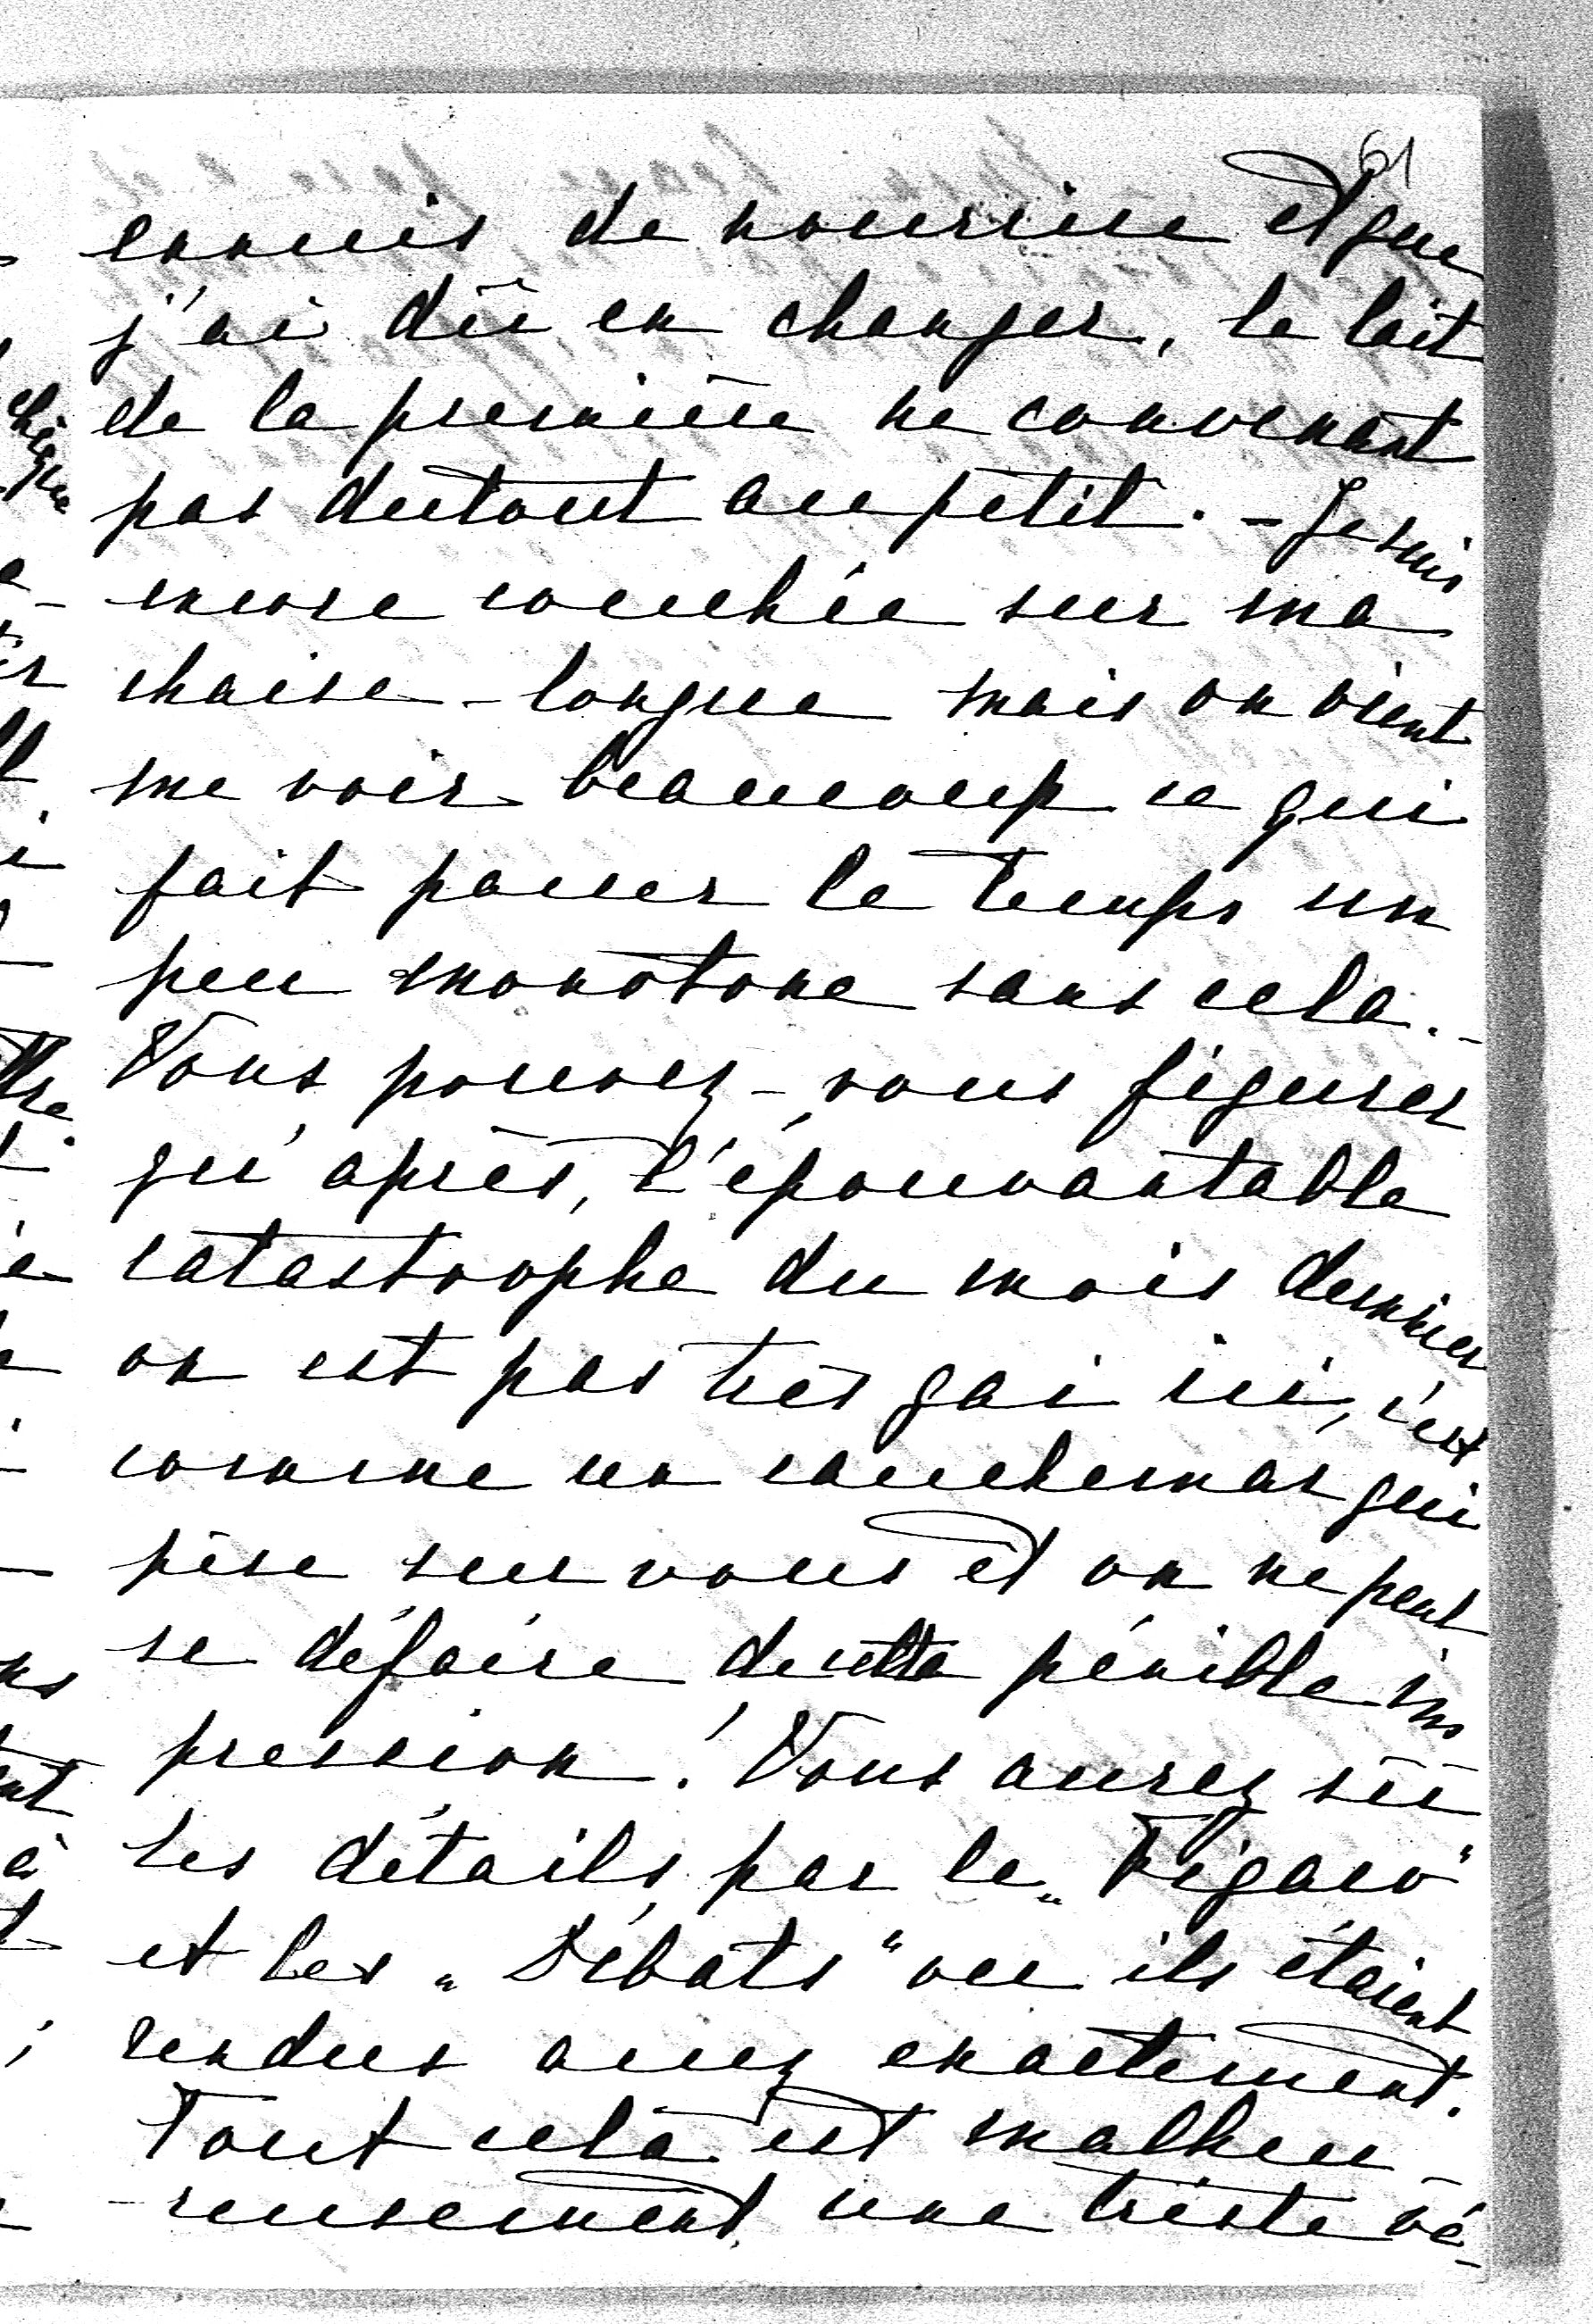 61
ennuis de nourrice et que
j'ai dû en changer, le lait
de la première ne convenant
pas dutout au petit. - Je suis
encore couchée sur ma
chaise-longue mais on vient
me voir beaucoup ce qui
fait passer le temps un
peu monotone sans cela. -
Vous pouvez-vous figurer
qu'après, l'épouvantable
catastrophe du mois dernier
on est pas très gai ici, c'est
comme un cauchemar qui
pèse sur vous et on ne peut
se défaire de cette pénible im
pression! Vous aurez sû
les détails par le „Figaro"
et les „Débats" ou ils étaient
rendus assez exactement.
Tout cela est malheu-
-reusement une triste vé-